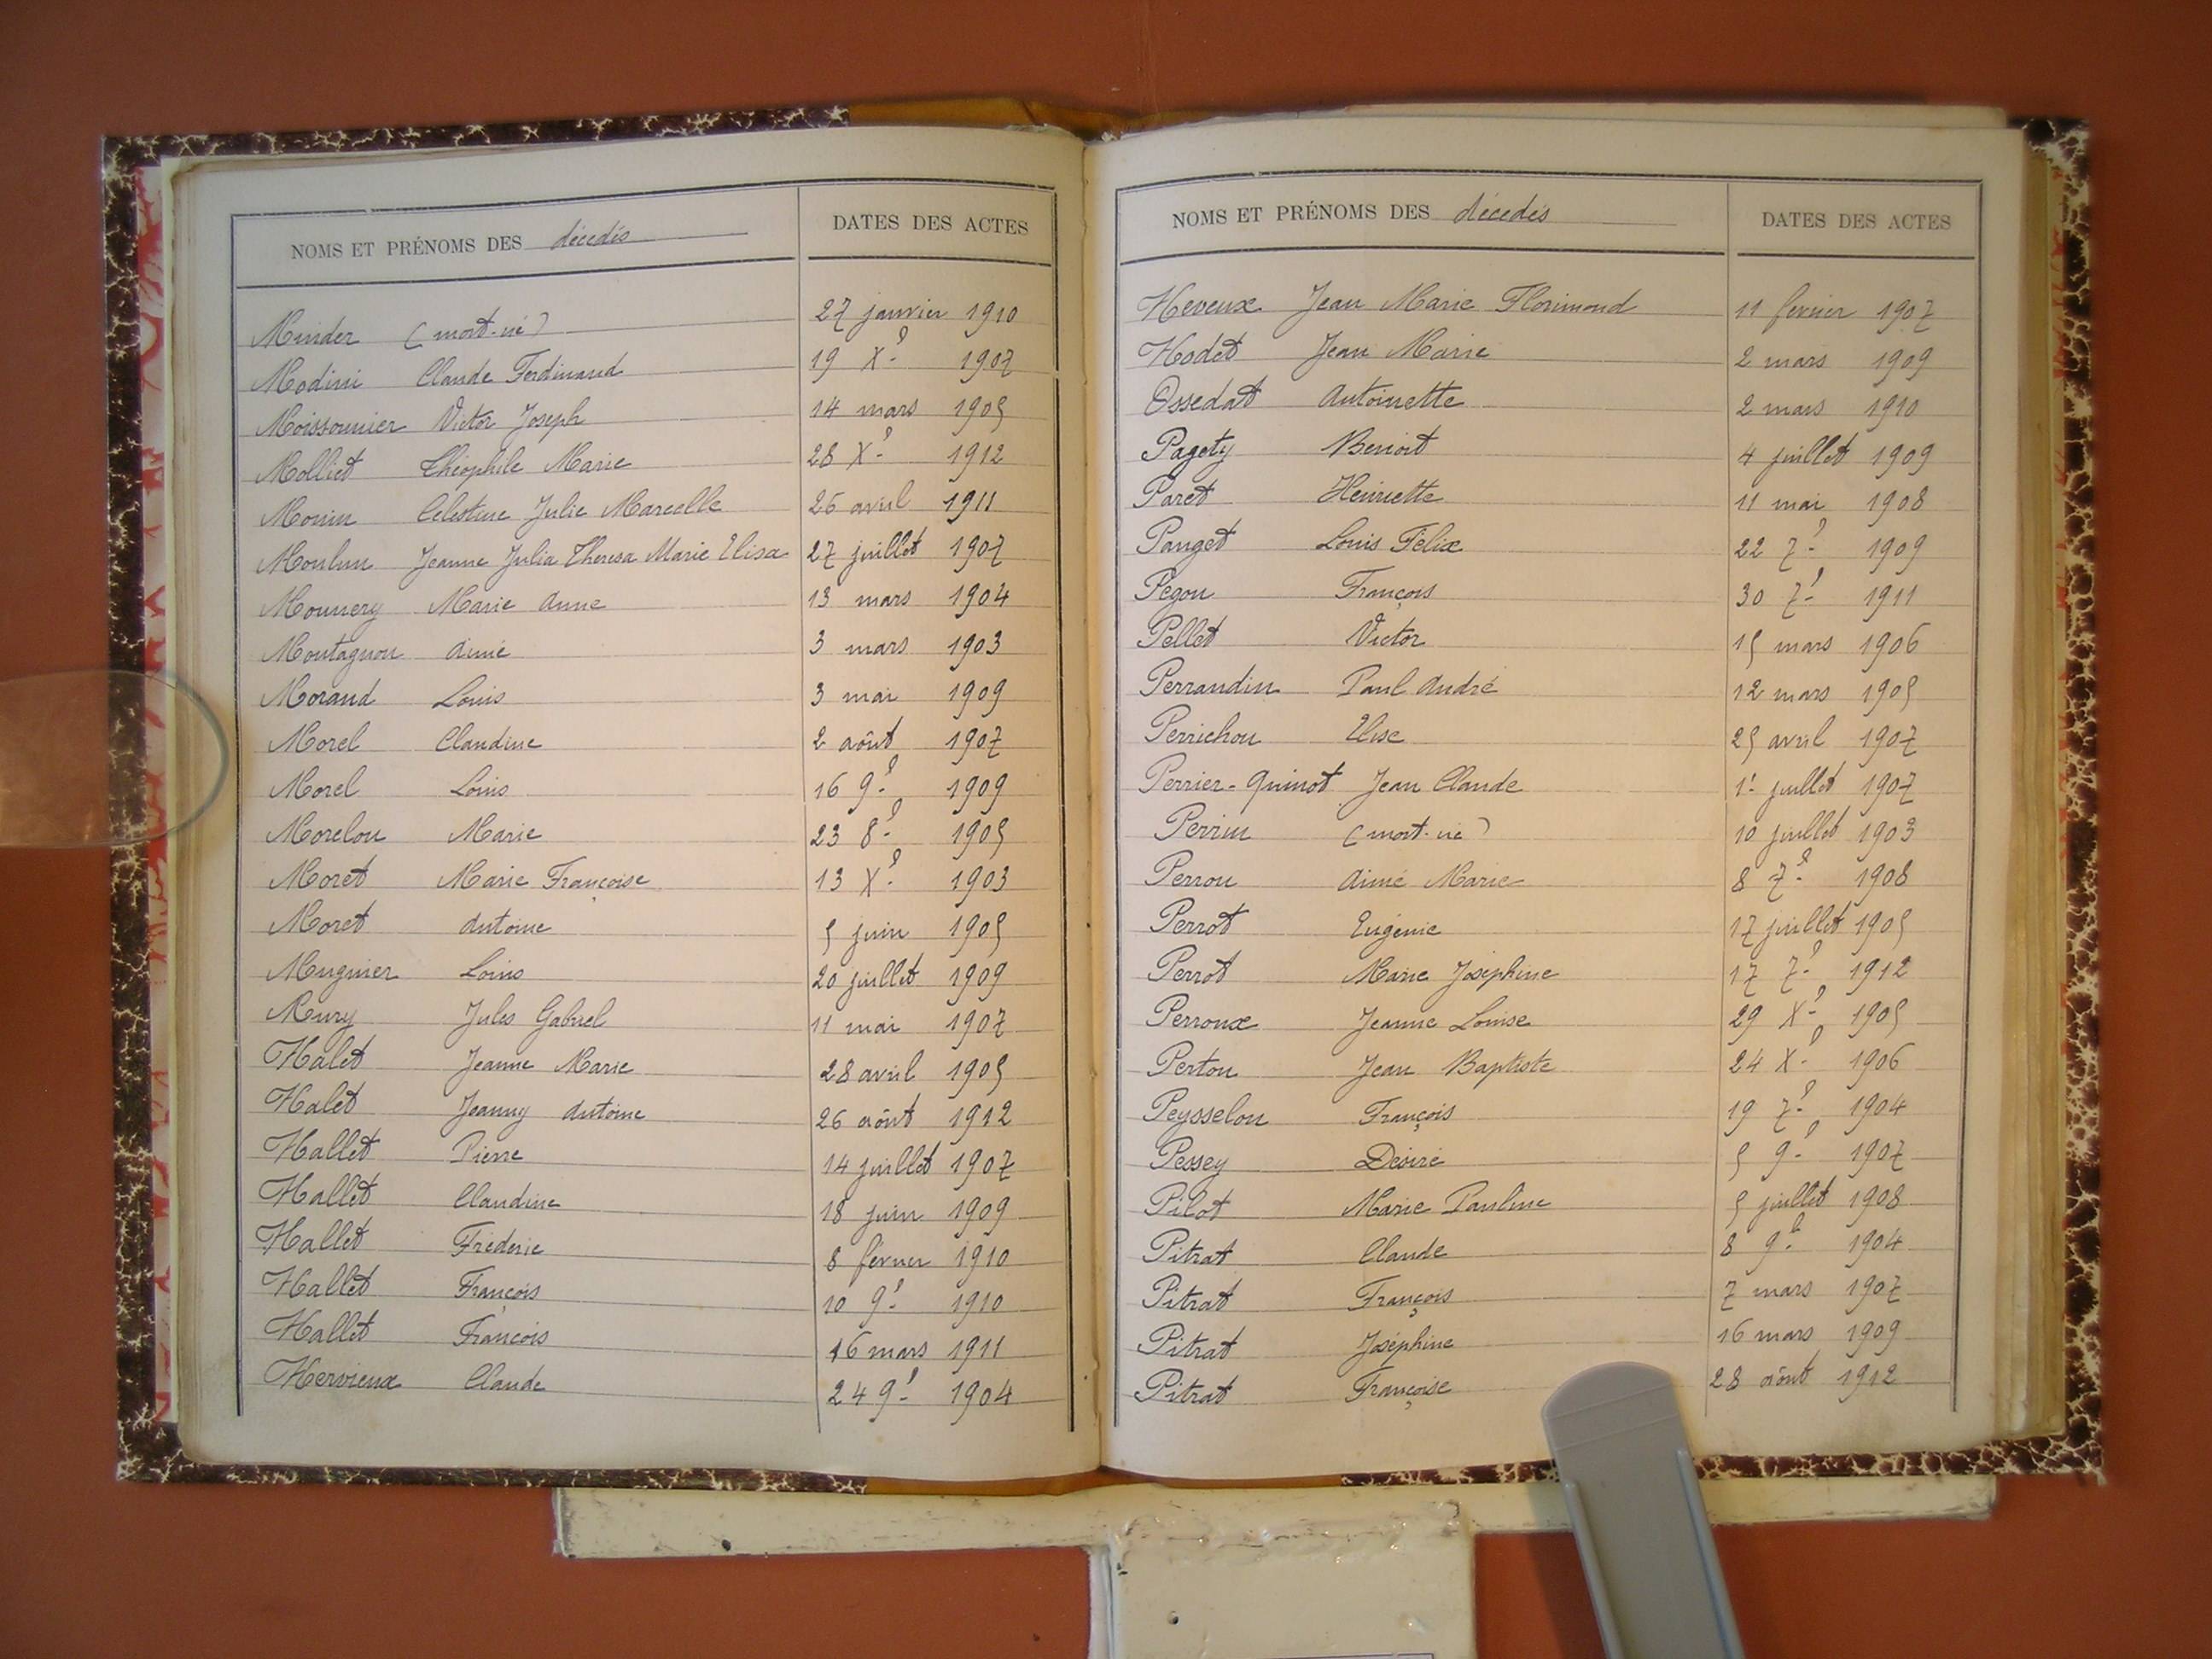 NOMS ET PRÉNOMS DES décédés DATES DES ACTES
Minder (mort-né) 27 janvier 1910
Modini Claude Ferdinand 19 Xe 1907
Moissonnier Victor Joseph 14 mars 1905
Molliet Théophile Marie 28 Xe 1912
Monin Célestine Julie Marcelle 26 avril 1911
Moulun Jeanne Julia Theresa Marie Elisa 27 juillet 1907
Mounery Marie Anne 13 mars 1904
Montagnon Aimé 3 mars 1903
Morand Louis 3 mai 1909
Morel Claudine 2 août 1907
Morel Louis 16 9e 1909
Morelon Marie 23 8e 1905
Moret Marie Françoise 13 Xe 1903
Moret Antoine 5 juin 1905
Mugnier Louis 20 juillet 1909
Mury Jules Gabriel 11 mai 1907
Nalet Jeanne Marie 28 avril 1905
Nalet Jeanny Antoine 26 août 1912
Nallet Pierre 14 juillet 1907
Nallet Claudine 18 juin 1909
Nallet Fréderic 8 février 1910
Nallet François 10 9e 1910
Nallet François 16 mars 1911
Nervieux Claude 24 9e 1904
NOMS ET PRÉNOMS DES décédés DATES DES ACTES
Neveux Jean Marie Florimond 11 février 1907
Nodet Jean Marie 2 mars 1909
Ossedat Antoinette 2 mars 1910
Pagety Benoit 4 juillet 1909
Paret Henriette 11 mai 1908
Pauget Louis Félix 22 7e 1909
Pegon François 30 7e 1911
Pellet Victor 15 mars 1906
Perrandin Paul André 12 mars 1905
Perrichon Elise 25 avril 1907
Perrier-Guinot Jean Claude 1e juillet 1907
Perrin (mort-né) 10 juillet 1903
Perron Aimé Marie 8 7e 1908
Perrot Eugénie 17 juillet 1905
Perrot Marie Joséphine 17 7e 1912
Perroux Jeanne Louise 29 Xe 1905
Perton Jean Baptiste 24 Xe 1906
Peysselon François 19 7e 1904
Pessey Désiré 5 9e 1907
Pilot Marie Pauline 5 juillet 1908
Pitrat Claude 8 9e 1904
Pitrat François 7 mars 1907
Pitrat Joséphine 16 mars 1909
Pitrat Françoise 28 août 1912